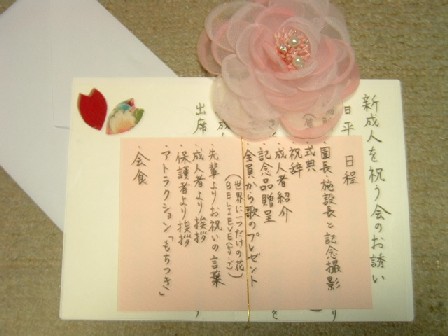 新成人を祝う会のお誘い
日程
・園長、施設長と記念撮影
・式典
祝辞
成人者紹介
記念品贈呈
全員から歌のプレゼント
(世界に一つだけの花)
・先輩よりお祝いの言葉
・成人者より挨拶
・保護者より挨拶
・アトラクション「もちつき」
・会食
日 平
出席